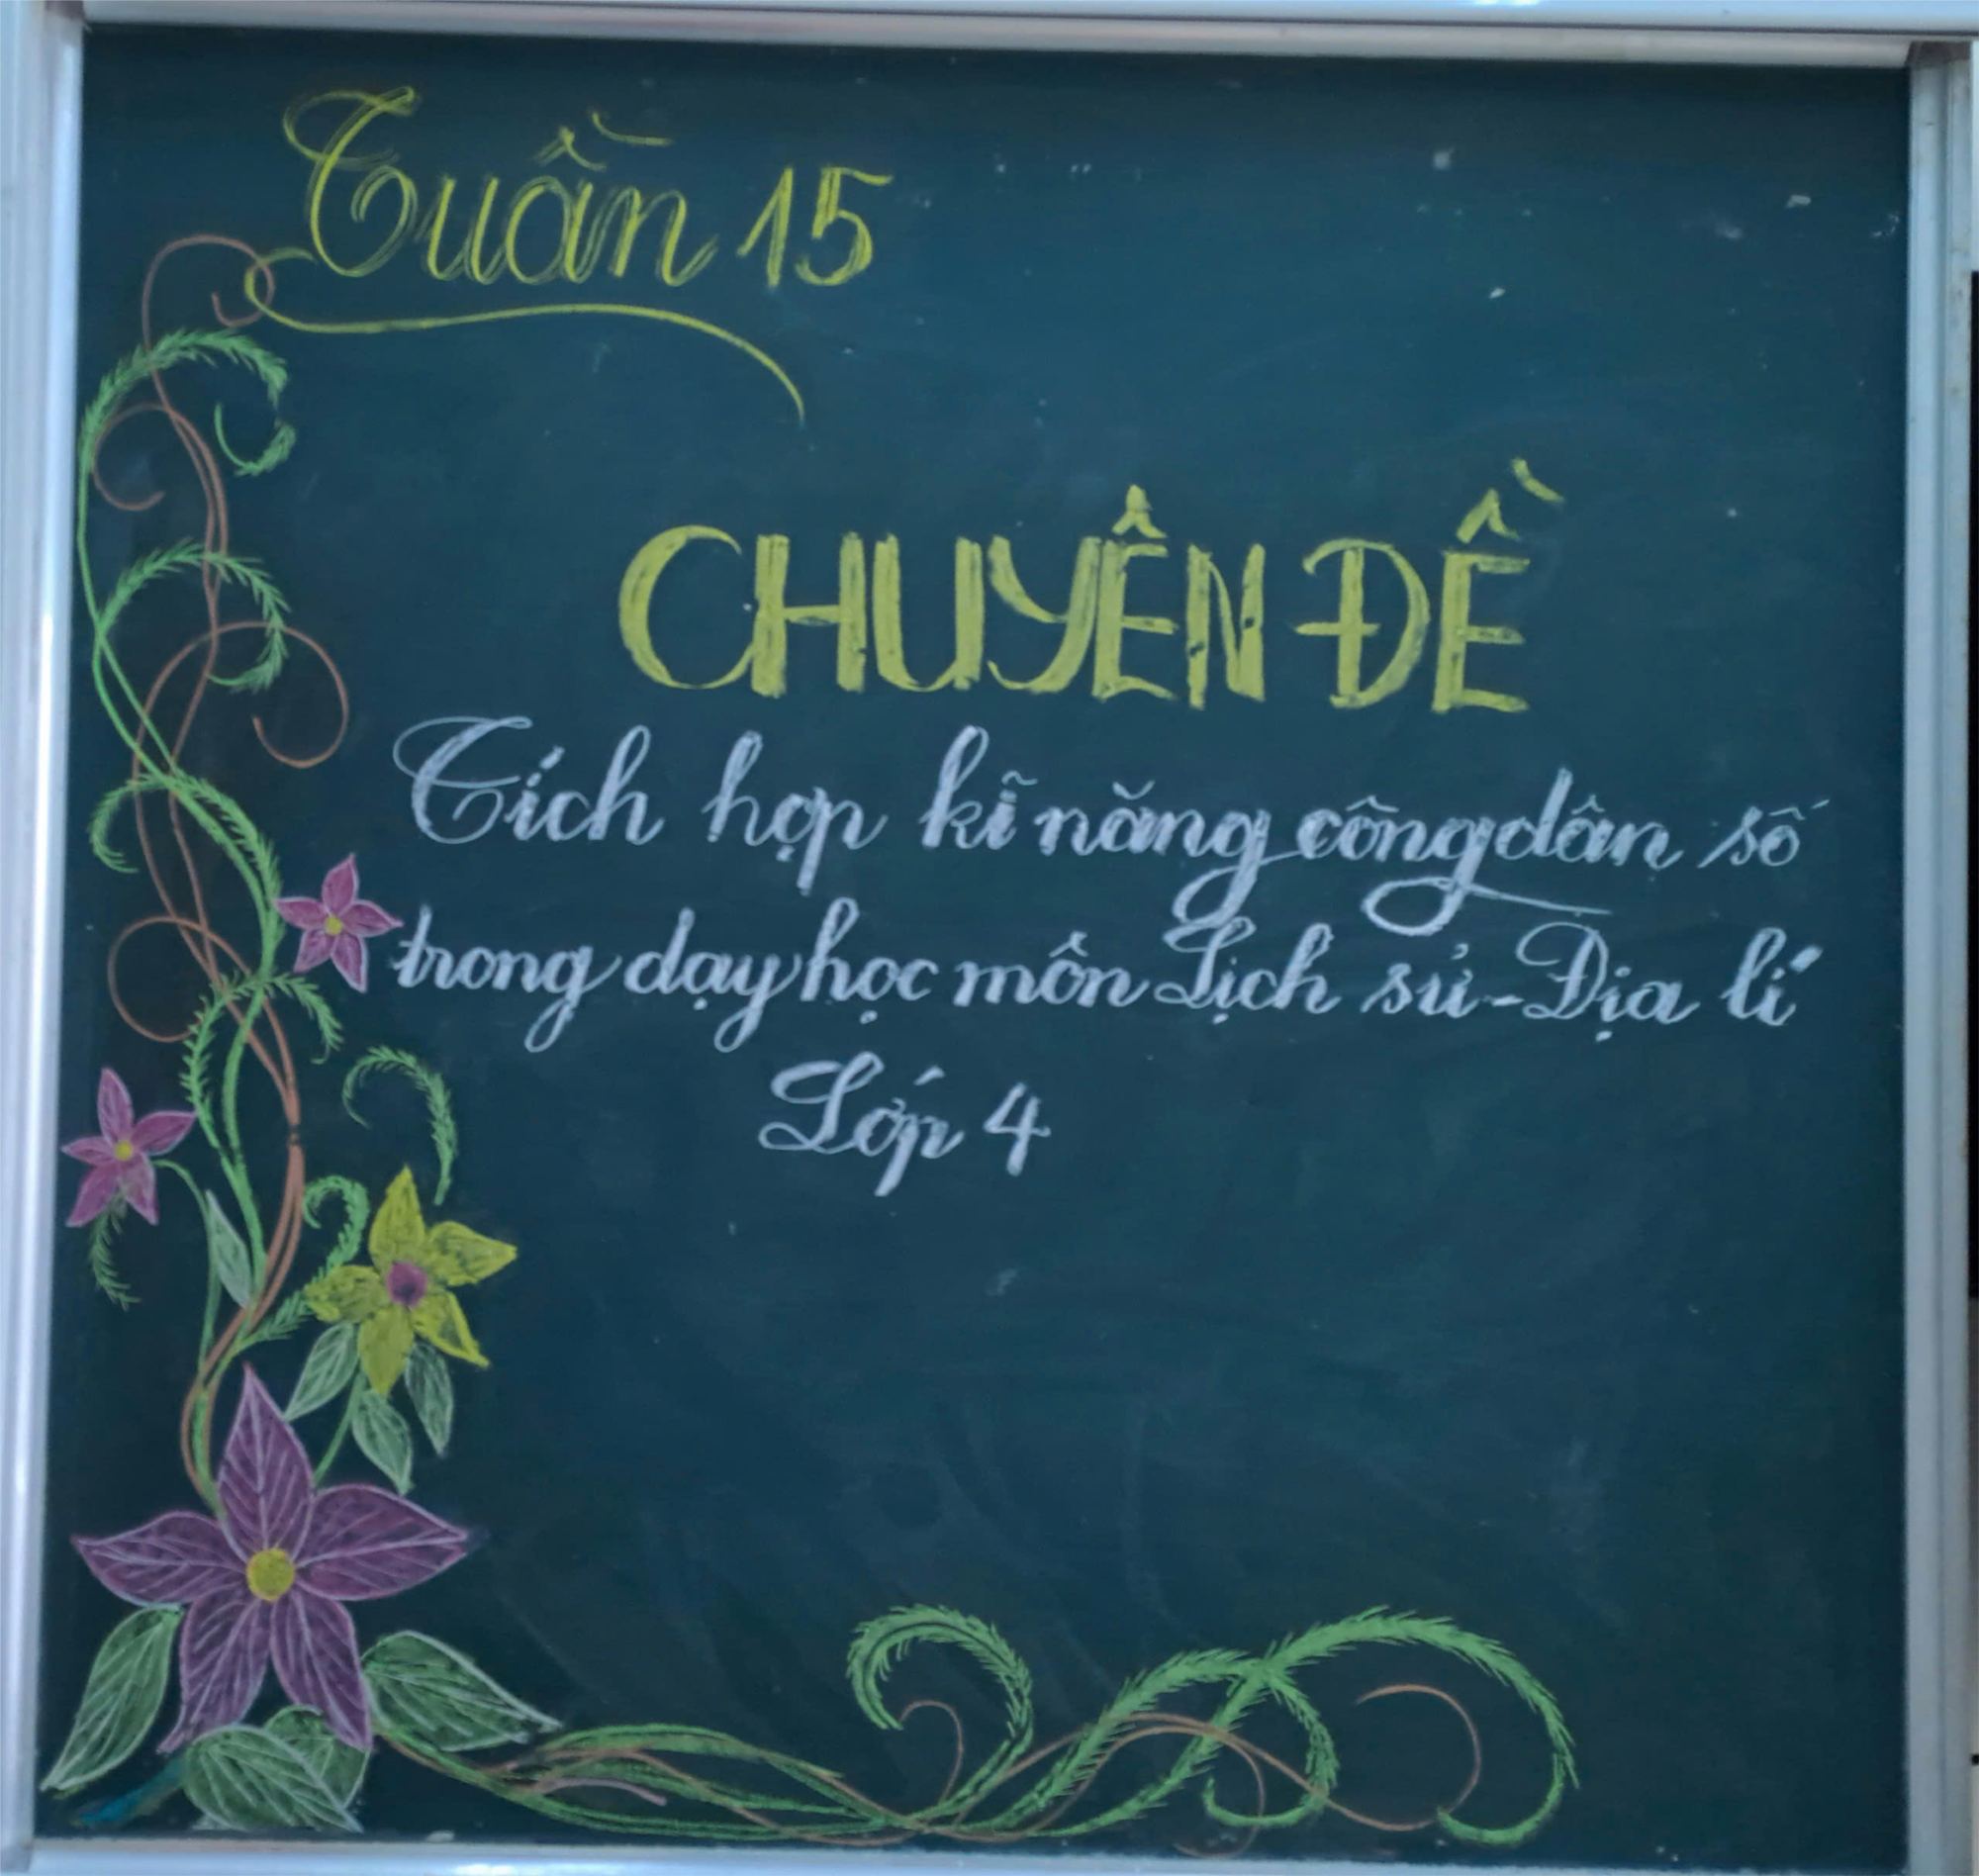 Tuần 15
CHUYÊN ĐỀ
Tích hợp kĩ năng công dân số
trong dạy học môn Lịch sử - Địa lí
Lớp 4